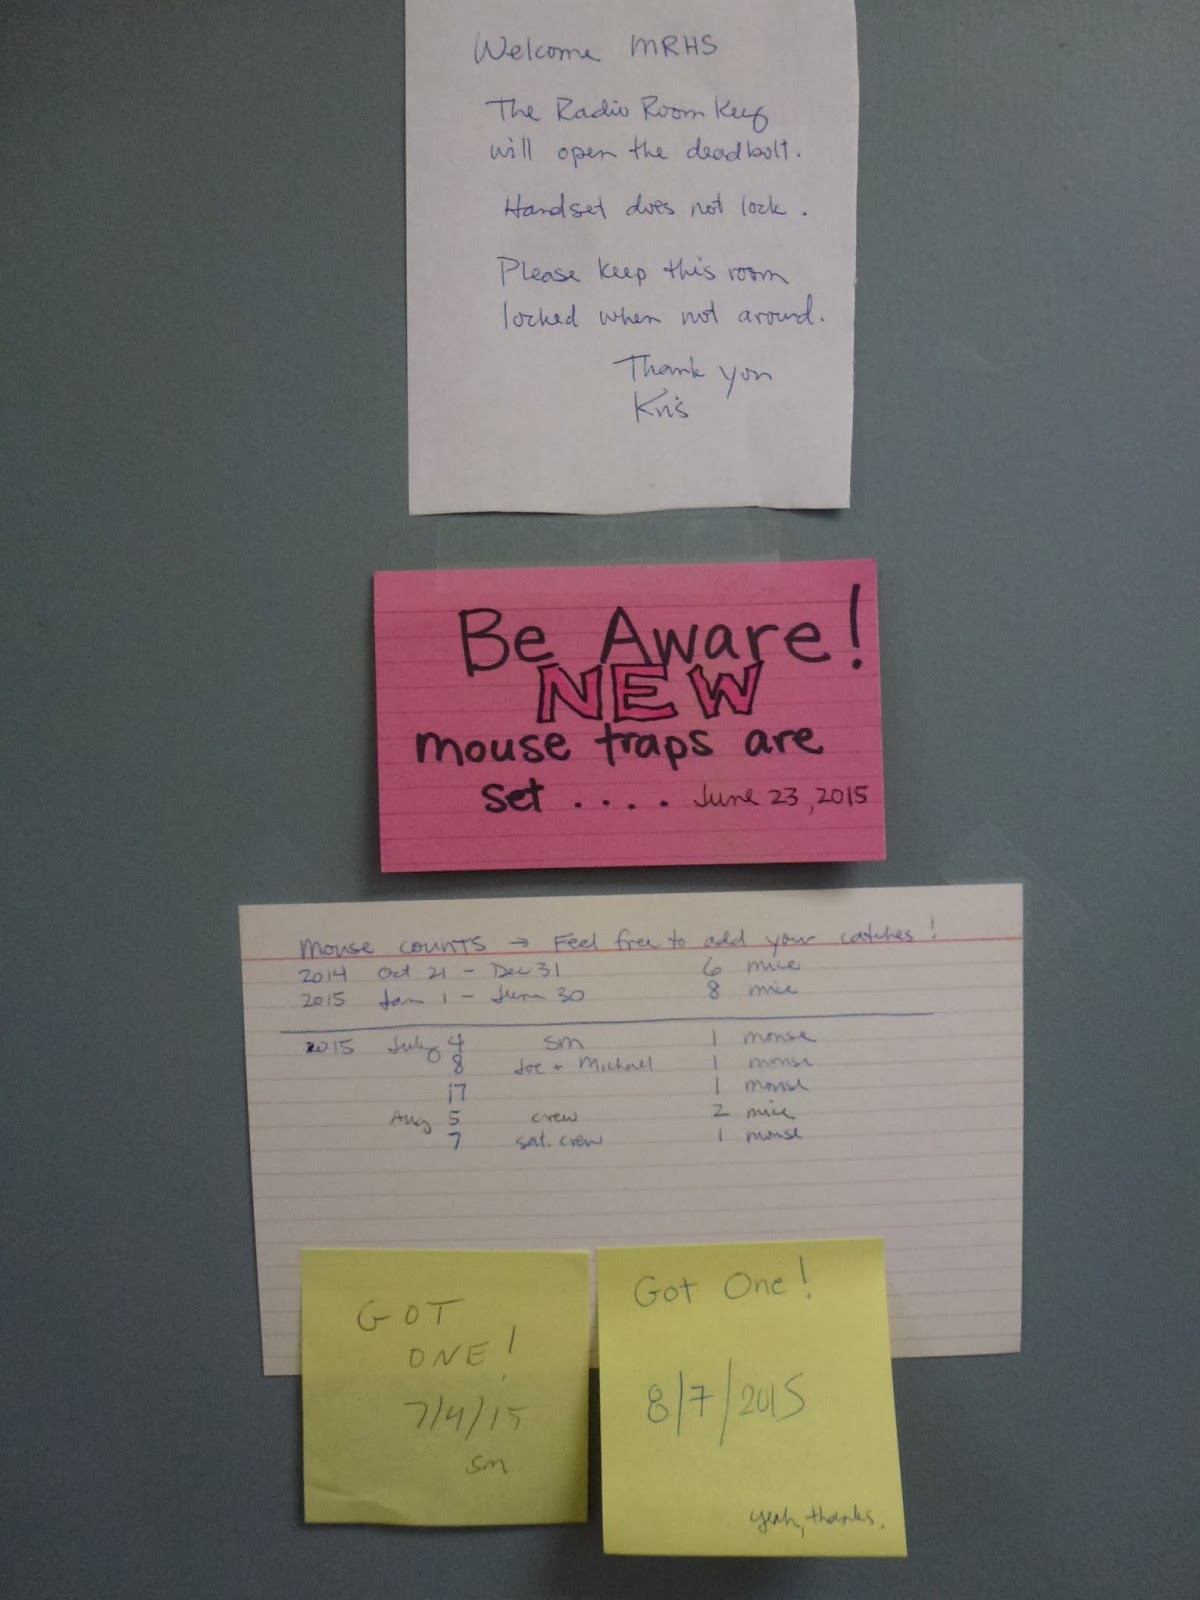 Welcome MRHS
The Radio Room Key
will open the deadbolt.
Handset does not lock.
Please keep this room
locked when not around.
Thank you
Kris
Be Aware!
NEW
mouse traps are
set .... June 23, 2015
Mouse counts → Feel free to add your catches!
2014 Oct 21 - Dec 31 6 mice
2015 Jan 1 - June 30 8 mice
2015 July 4 sm 1 mouse
8 Joe + Michael 1 mouse
17 1 mouse
Aug 5 crew 2 mice
7 sat. crew 1 mouse
GOT
ONE!
7/4/15
sm
Got One!
8/7/2015
yeah, thanks.